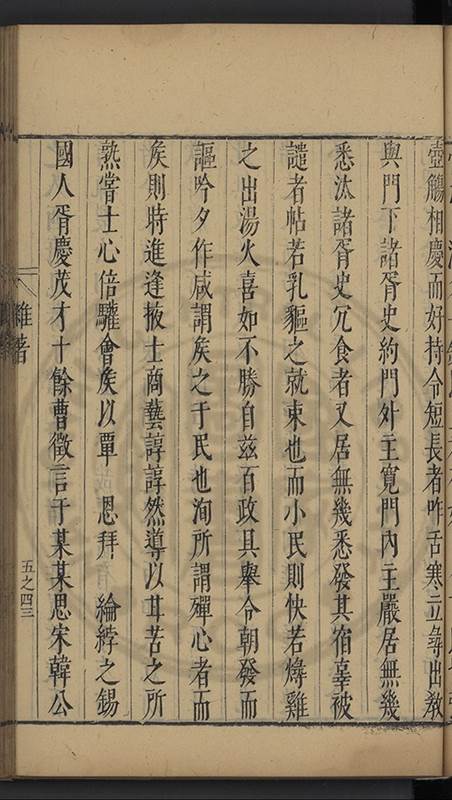 壺觴相慶而好持令短長者咋舌寒立尋出教
與門下諸胥史約門外主寬門內主嚴居無幾
悉汰諸胥史冗食者又居無幾悉發其宿辜被
譴者帖若乳䝙之就束也而小民則快若燖雞
之出湯火喜如不勝自茲百政具舉令朝發而
謳吟夕作咸謂矦之于民也洵所謂殫心者而
矦則時進逢掖士商藝諄諄然導以甘苦之所
熟嘗士心倍驩會矦以覃 恩拜 綸綍之錫
國人胥慶茂才十餘曹徵言于某某思宋韓公
雜著
五之四三